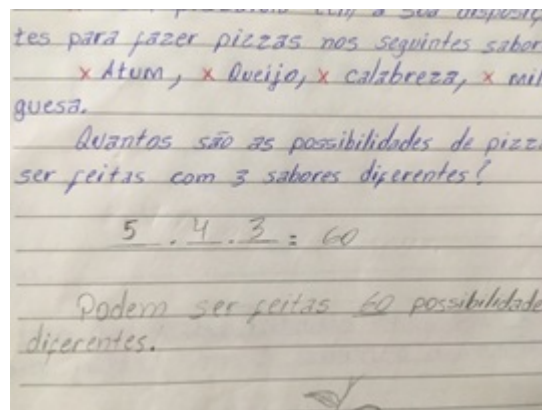 tem a sua disposiç
tes para fazer piezas nos seguintes sabor
x Atum, x Queijo, x calabreza, x mil
guesa.
Quantos são as possibilidades de pizz
ser feitas com 3 sabores diferentes?
5 . 4 . 3 = 60
Podem ser feitas 60 possibilidade
diferentes.